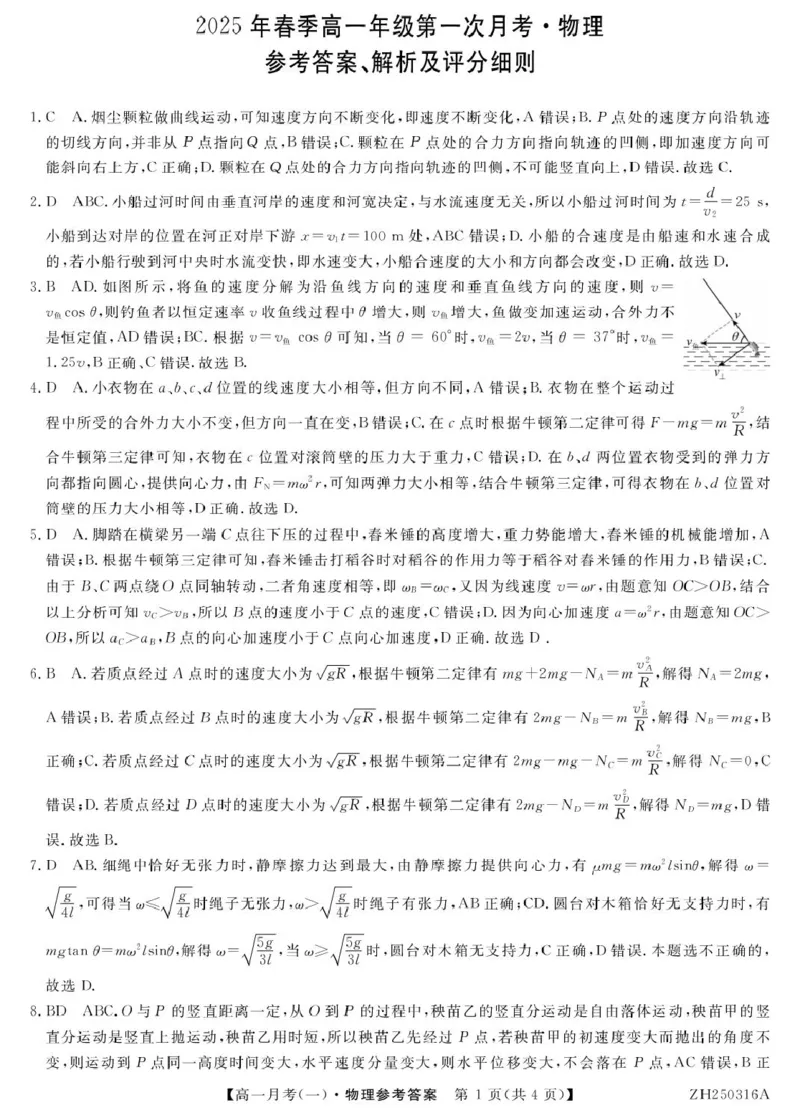 2025 年春季高一年级第一次月考·物理
参考答案、解析及评分细则
1. C A. 烟尘颗粒做曲线运动,可知速度方向不断变化,即速度不断变化,A 错误;B. P 点处的速度方向沿轨迹
的切线方向,并非从 P 点指向 Q 点,B 错误;C. 颗粒在 P 点处的合力方向指向轨迹的凹侧,即加速度方向可
能斜向右上方,C 正确;D. 颗粒在 Q 点处的合力方向指向轨迹的凹侧,不可能竖直向上,D 错误. 故选 C.
2. D ABC. 小船过河时间由垂直河岸的速度和河宽决定,与水流速度无关,所以小船过河时间为 t=d/v₂=25 s,
小船到达对岸的位置在河正对岸下游 x=v₁t=100 m 处,ABC 错误;D. 小船的合速度是由船速和水速合成
的,若小船行驶到河中央时水流变快,即水速变大,小船合速度的大小和方向都会改变,D 正确. 故选 D.
3. B AD. 如图所示,将鱼的速度分解为沿鱼线方向的速度和垂直鱼线方向的速度,则 v=
v鱼cos θ,则钓鱼者以恒定速率 v 收鱼线过程中 θ 增大,则 v鱼增大,鱼做变加速运动,合外力不
是恒定值,AD 错误;BC. 根据 v=v鱼 cos θ 可知,当 θ = 60°时,v鱼=2v,当 θ = 37°时,v鱼 =
1.25v,B 正确、C 错误. 故选 B.
v
v鱼
θ
v⊥
4. D A. 小衣物在 a、b、c、d 位置的线速度大小相等,但方向不同,A 错误;B. 衣物在整个运动过
程中所受的合外力大小不变,但方向一直在变,B 错误;C. 在 c 点时根据牛顿第二定律可得 F-mg=m v²/R,结
合牛顿第三定律可知,衣物在 c 位置对滚筒壁的压力大于重力,C 错误;D. 在 b、d 两位置衣物受到的弹力方
向都指向圆心,提供向心力,由 F_N=mω²r,可知两弹力大小相等,结合牛顿第三定律,可得衣物在 b、d 位置对
筒壁的压力大小相等,D 正确. 故选 D.
5. D A. 脚踏在横梁另一端 C 点往下压的过程中,舂米锤的高度增大,重力势能增大,舂米锤的机械能增加,A
错误;B. 根据牛顿第三定律可知,舂米锤击打稻谷时对稻谷的作用力等于稻谷对舂米锤的作用力,B 错误;C.
由于 B、C 两点绕 O 点同轴转动,二者角速度相等,即 ω_B=ω_C,又因为线速度 v=ωr,由题意知 OC>OB,结合
以上分析可知 v_C>v_B,所以 B 点的速度小于 C 点的速度,C 错误;D. 因为向心加速度 a=ω²r,由题意知 OC>
OB,所以 a_C>a_B,B 点的向心加速度小于 C 点向心加速度,D 正确. 故选 D .
6. B A. 若质点经过 A 点时的速度大小为 √gR,根据牛顿第二定律有 mg+2mg-N_A=m v_A²/R,解得 N_A=2mg,
A 错误;B. 若质点经过 B 点时的速度大小为 √gR,根据牛顿第二定律有 2mg-N_B=m v_B²/R,解得 N_B=mg,B
正确;C. 若质点经过 C 点时的速度大小为 √gR,根据牛顿第二定律有 2mg-mg-N_C=m v_C²/R,解得 N_C=0,C
错误;D. 若质点经过 D 点时的速度大小为 √gR,根据牛顿第二定律有 2mg-N_D=m v_D²/R,解得 N_D=mg,D 错
误. 故选 B.
7. D AB. 细绳中恰好无张力时,静摩擦力达到最大,由静摩擦力提供向心力,有 μmg=mω²lsinθ,解得 ω=
√(g/4l),可得当 ω≤√(g/4l)时绳子无张力,ω>√(g/4l)时绳子有张力,AB 正确;CD. 圆台对木箱恰好无支持力时,有
mgtan θ=mω²lsinθ,解得 ω=√(5g/3l),当 ω≥√(5g/3l)时,圆台对木箱无支持力,C 正确,D 错误. 本题选不正确的,
故选 D.
8. BD ABC. O 与 P 的竖直距离一定,从 O 到 P 的过程中,秧苗乙的竖直分运动是自由落体运动,秧苗甲的竖
直分运动是竖直上抛运动,秧苗乙用时短,所以秧苗乙先经过 P 点,若秧苗甲的初速度变大而抛出的角度不
变,则运动到 P 点同一高度时间变大,水平速度分量变大,则水平位移变大,不会落在 P 点,AC 错误,B 正
【高一月考(一)·物理参考答案 第 1 页(共 4 页)】 ZH250316A